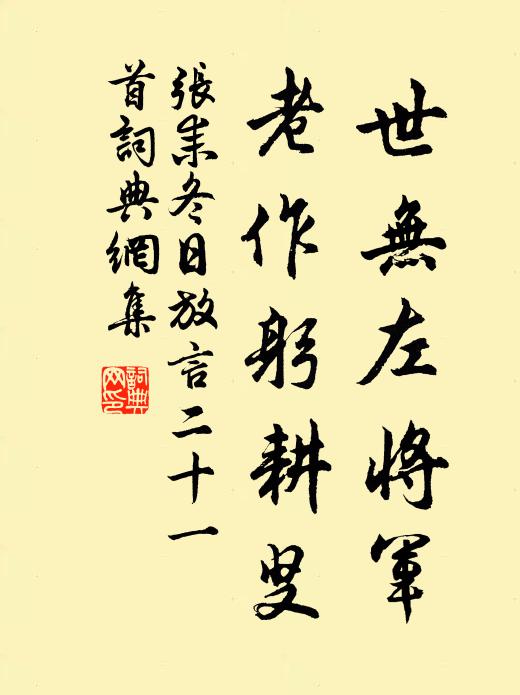 世無左將軍
老作躬耕叟
張耒冬日放言二十一
首詞典網集
詞典
网印